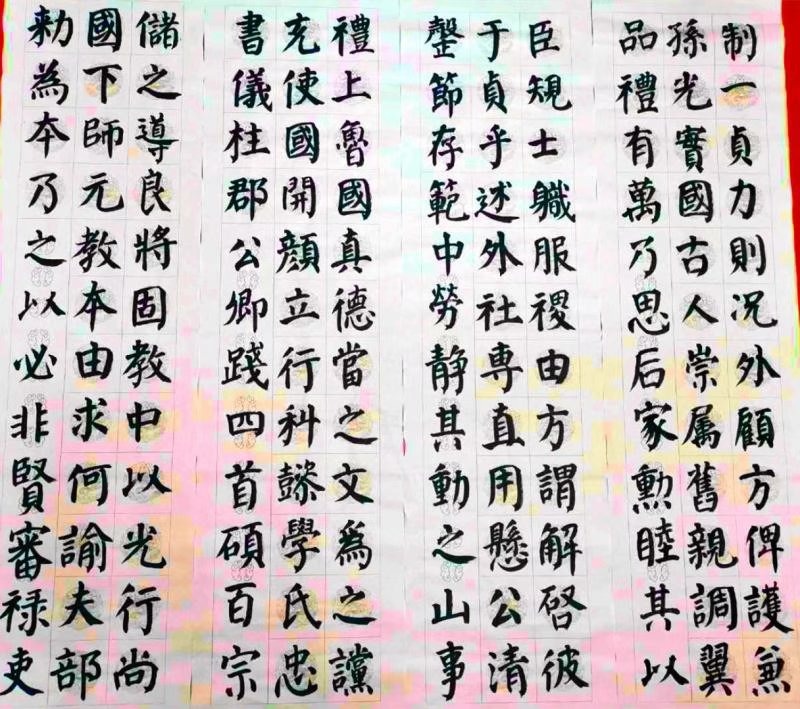 勑國儲
為下之
本師導
乃元良
之教將
以本固
必由教
非求中
賢何以
審諭光
禄夫行
吏部尚
書充禮
儀使上
柱國魯
郡開國
公顔真
卿立德
踐行當
四科之
首懿文
碩學為
百氏之
宗忠讜
罄于臣
節貞規
存乎士
範述職
中外服
勞社稷
静専由
其直方
動用謂
之懸解
山公啓
事清彼
品孫制
禮光一
有實貞
萬國力
乃古則
思人况
后崇外
家属顧
勲舊方
睦親俾
其調護
以翼兼